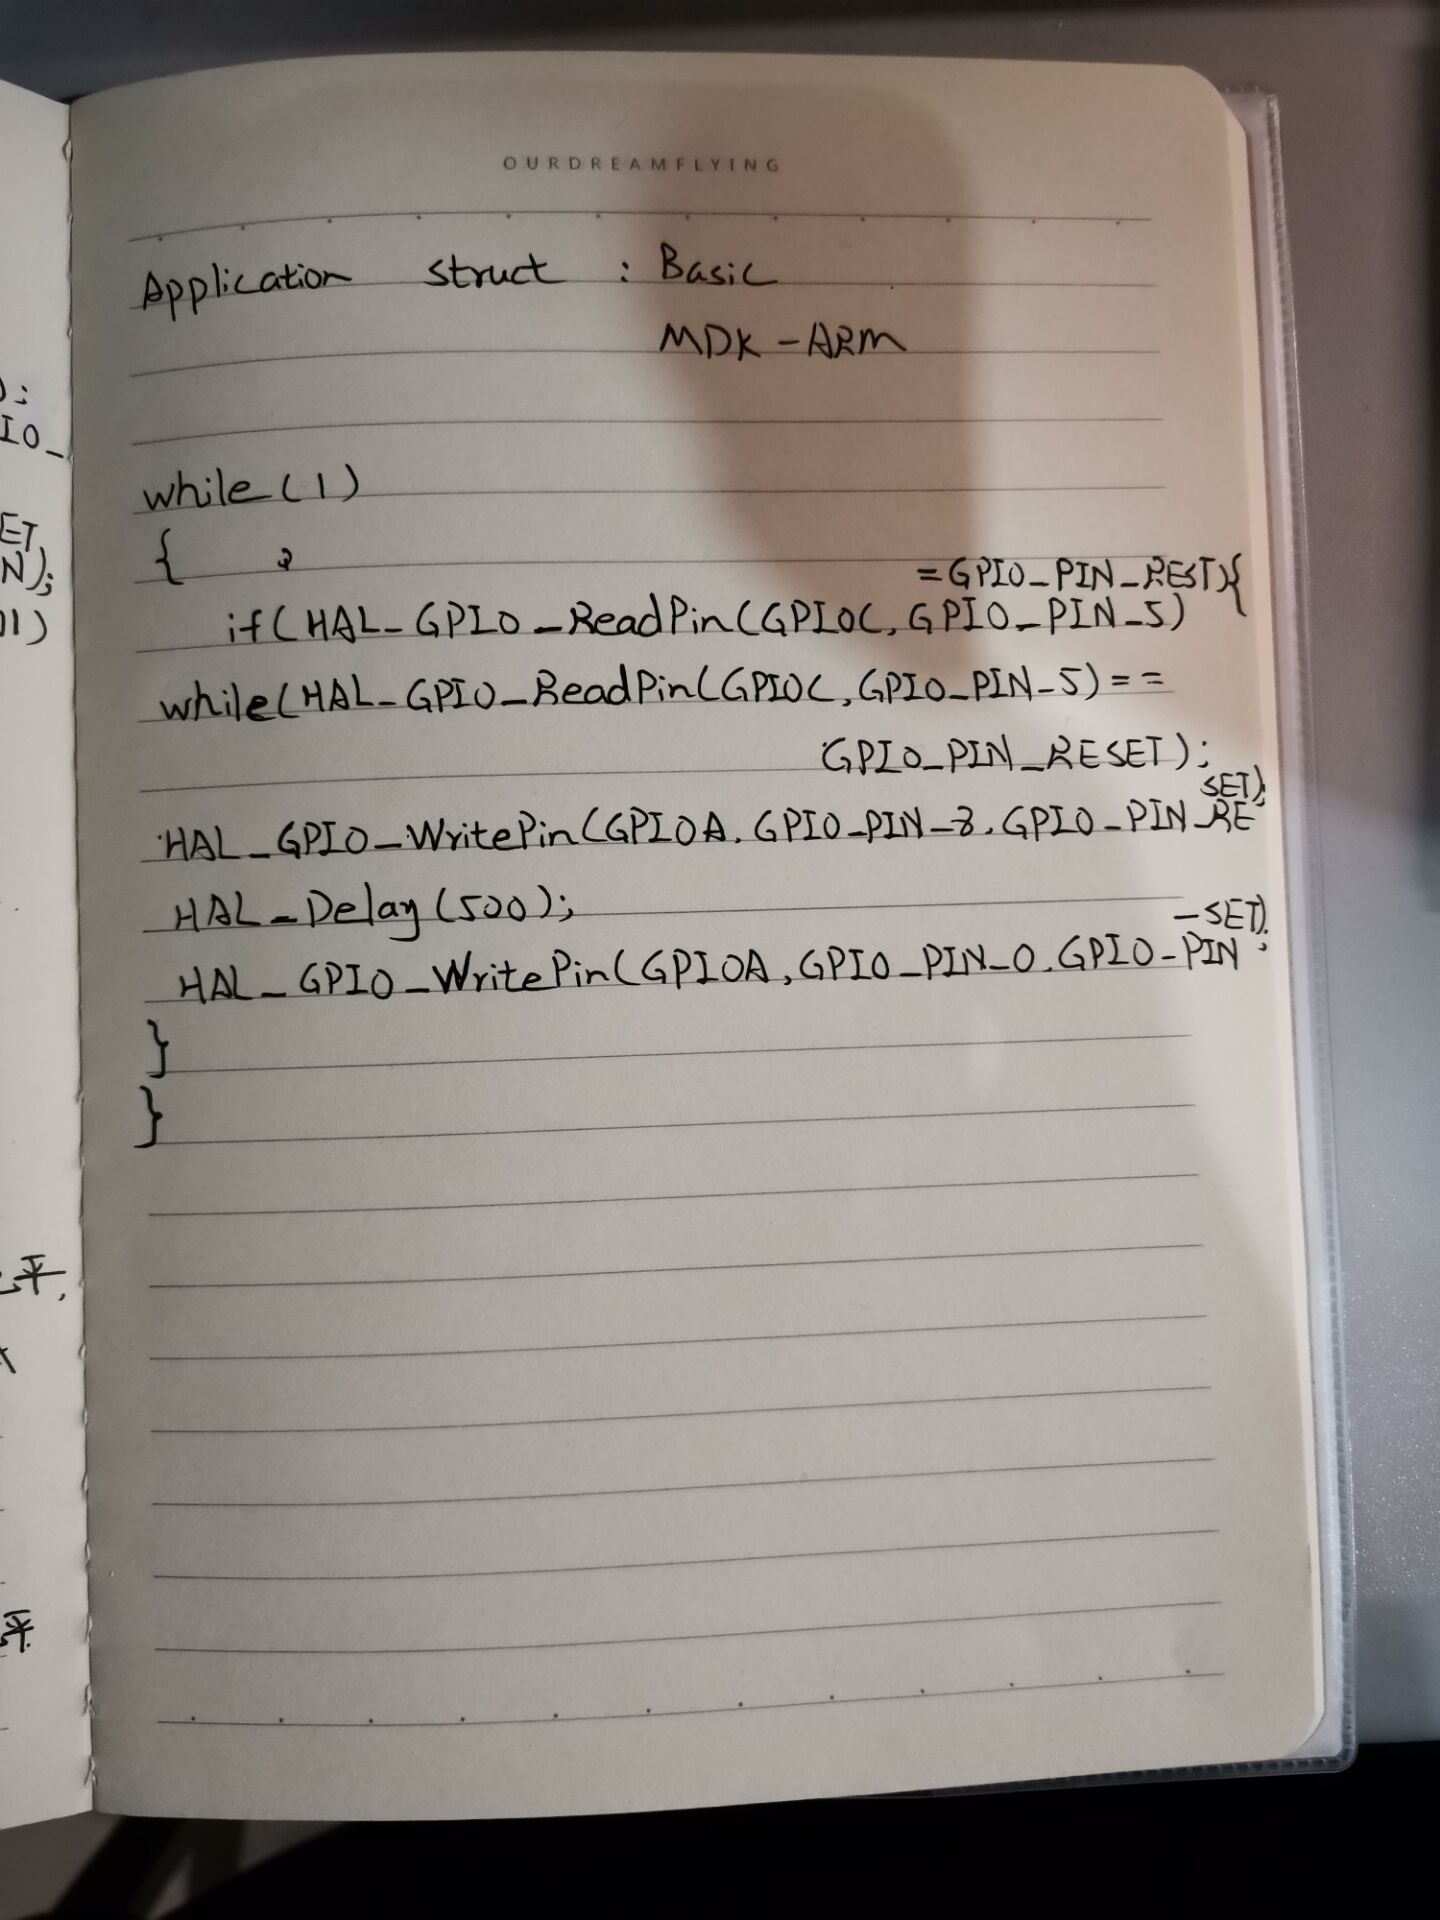 OURDREAMFLYING
Application struct : Basic
MDK-ARM
while(1)
{
=GPIO_PIN_REST){
if(HAL_GPIO_ReadPin(GPIOC,GPIO_PIN_5)
while(HAL_GPIO_ReadPin(GPIOC,GPIO_PIN_5)==
GPIO_PIN_RESET);
SET);
HAL_GPIO_WritePin(GPIOA.GPIO_PIN_8.GPIO_PIN_RE
HAL_Delay(500);
_SET);
HAL_GPIO_WritePin(GPIOA,GPIO_PIN_0.GPIO_PIN
}
}
);
IO_
ET
N);
01)
平.
平